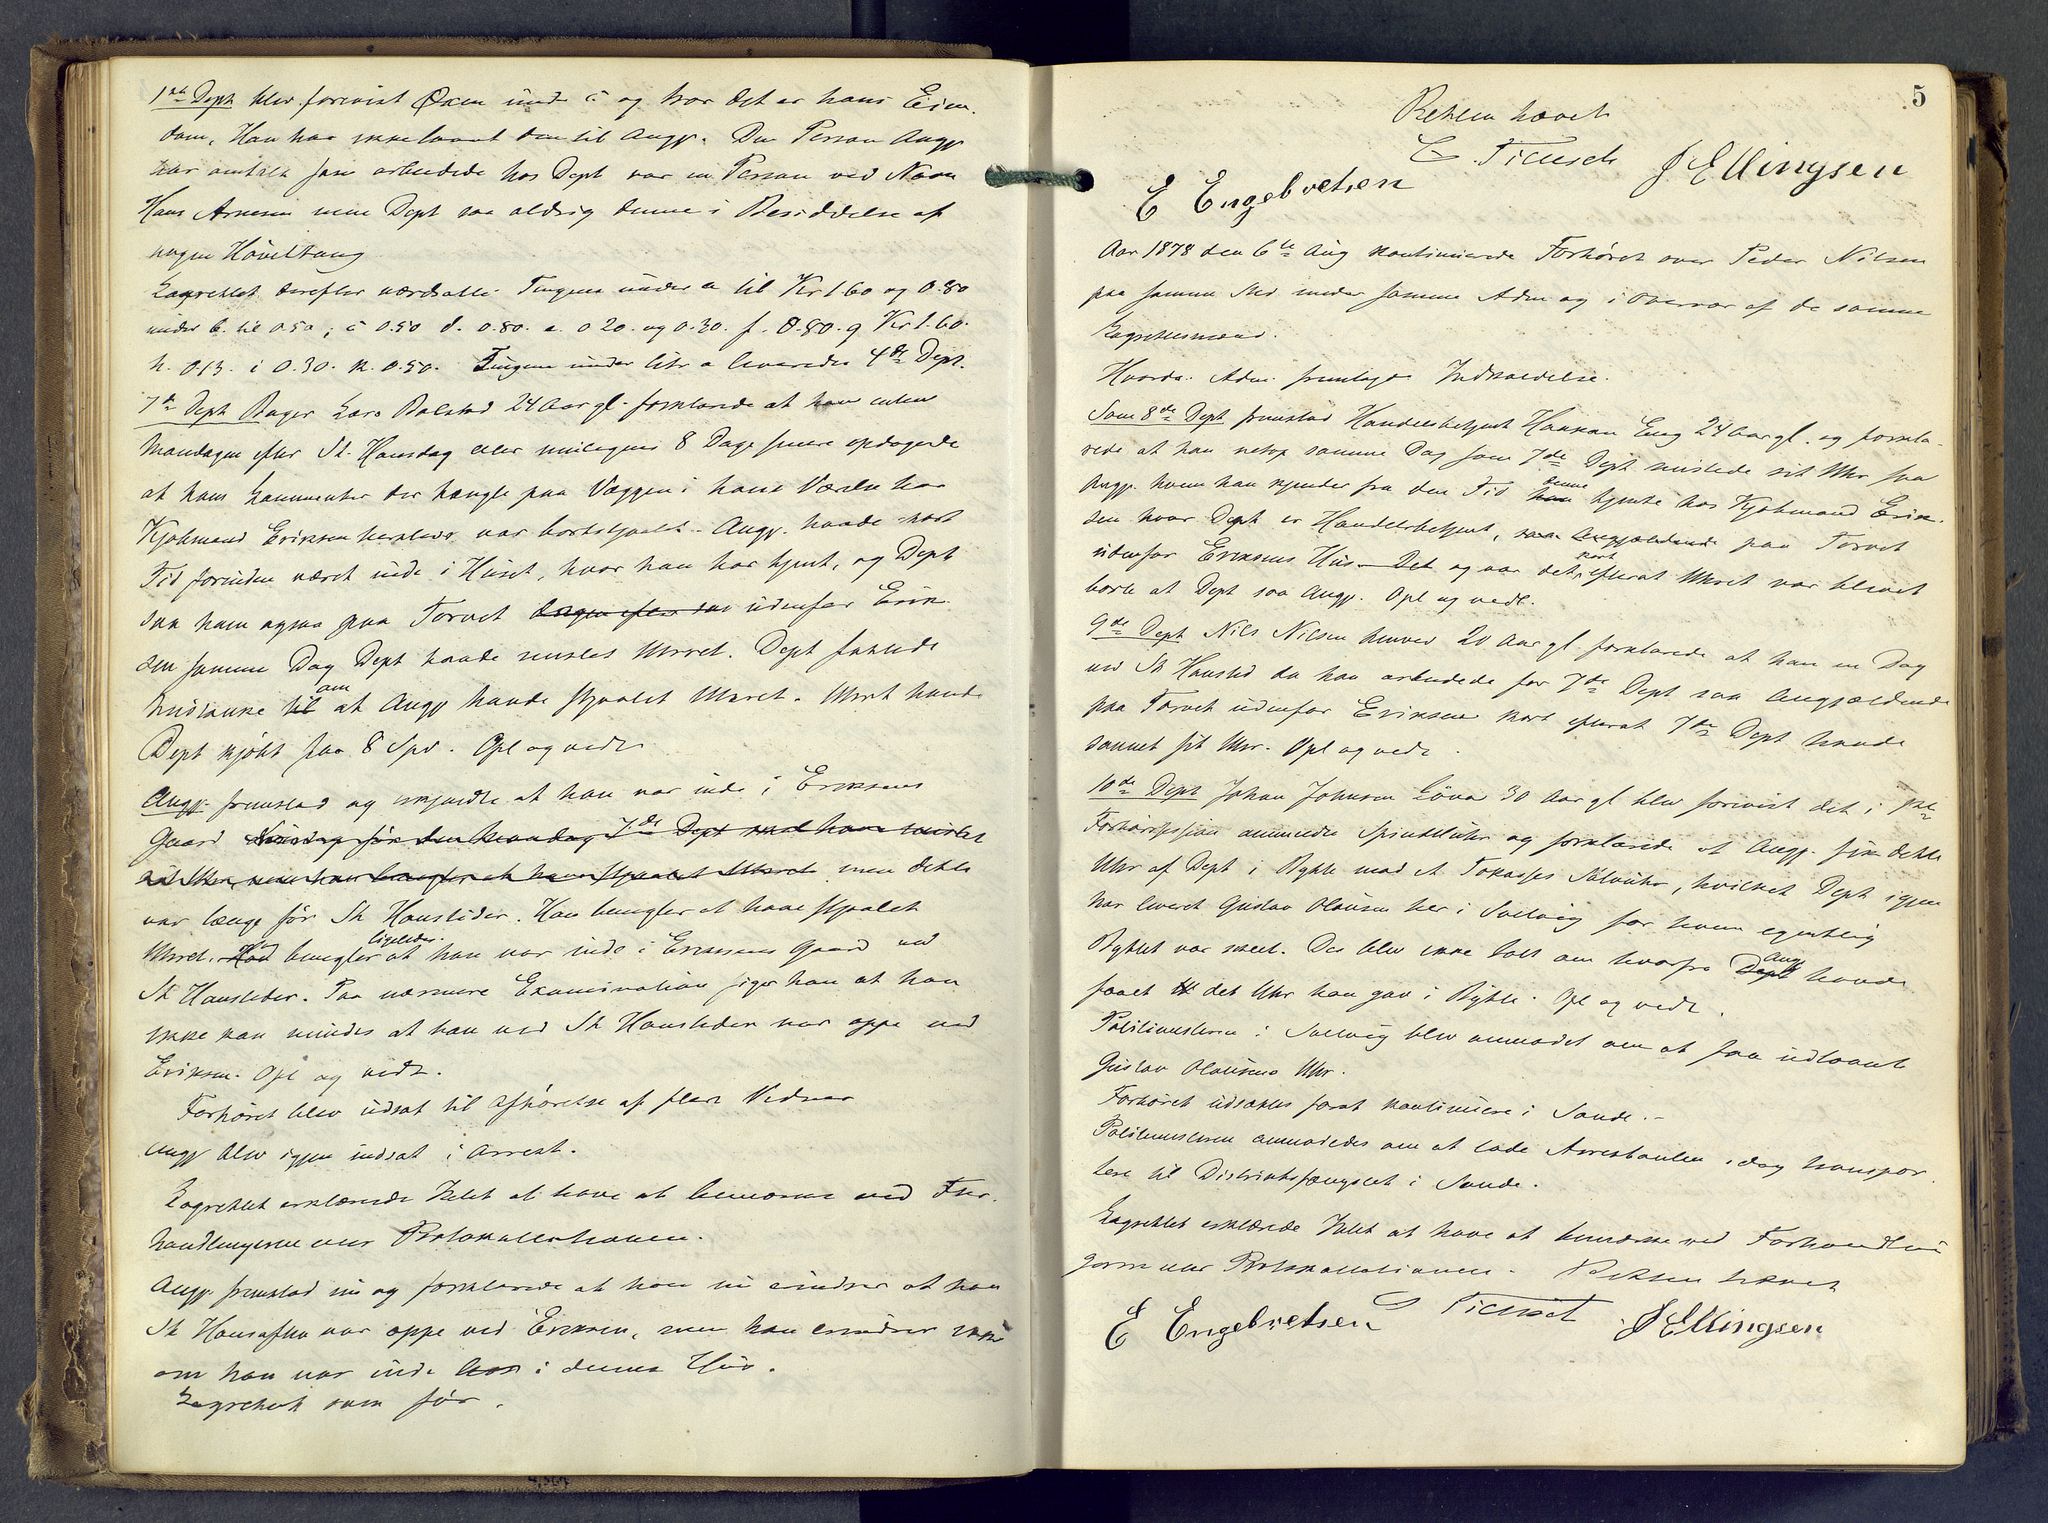 1ste Dept blev forevist Øxen under i og tror det er hans Eien
dom, Han har ikke laant den til Angj. Den Person Angj
har omtalt som arbeidede hos Dept var en Person ved Navn
Hans Arnesen men Dept saa aldrig denne i Besiddelse af
nogen Høveltang
Lagrettet derefter værdsatte Tingene under a til Kr 1.60 og 0.80
under b. til 0.50; c 0.50 d. 0.80. e. 0 20. og 0.30. f. 0.80. g Kr 1.60.
h. 013. i 0.30. k. 0.50. Tingene under litr a leveredes 4de Dept.
7de Dept Bager Lars Bolstad 24 Aar gl. forklarede at han enten
Mandagen efter St. Hansdag eller muligens 8 Dage senere opdagede
at hans Lommeuhr der hængte paa Væggen i hans Værelse hos
Kjøbmand Eriksen var bortstjaalet. Angj. havde kort
Tid forinden været inde i Huset, hvor han har tjent, og Dept
saa ham ogsaa paa Torvet udenfor Erik
sen samme Dag Dept havde mistet Uhret. Dept fattede
Mistanke til om at Angj havde stjaalet Uhret. Uhret havde
Dept kjøbt for 8 Spd. Opl og vedt.
Angj. fremstod og at han var inde i Eriksens
Gaard 7de Dept skal have mistet
sit Uhr, men han benegter at have stjaalet Uhret men dette
var længe før St Hanstider. Han benegter at have stjaalet
Uhret. Han benegter ligeledes at han var inde i Eriksens Gaard ved
St Hanstider. Paa nærmere Examination siger han at han
ikke kan mindes at han ved St Hanstider var oppe ved
Eriksen. Opl og vedt.
Forhøret blev udsat til Afhørelse af flere Vidner
Angj blev igjen indsat i Arrest.
Lagrettet erklærede Intet at have at bemærke ved For
handlingerne eller Protokollationen.
Angj. fremstod nu og forklarede at han nu erindrer at han
St Hansaften var oppe ved Eriksen, men han erindrer ikke
om han var inde hos i dennes Hus.
Lagrettet som før.
5
Retten hævet
E Engebretsen J Ellingsen
Aar 1878 den 6te Aug kontinuerede Forhøret over Peder Nilsen
paa samme Sted under samme Adm og i Overvær af de samme
Lagrettesmænd.
Hvorda: Adm. fremlagde Indkaldelse.
Som 8de Dept fremstod Handelsbetjent Haakan Eng 24 Aar gl. og forkla
rede at han netop samme Dag som 7de Dept mistede sit Uhr saa
Angj. hvem han kjender fra den Tid han denne tjente hos Kjøbmand Erik
sen hvor Dept er Handelsbetjent, paa Torvet
udenfor Eriksens Hus. Det og var det kort efterat Uhret var blevet
borte at Dept saa Angj. Opl og vedt.
9de Dept Nils Nilsen 20 Aar gl. forklarede at han en Dag
ved St Hanstid da han arbeidede for 7de Dept saa Angjældende
paa Torvet udenfor Eriksen kort efterat 7de Dept havde
savnet sit Uhr. Opl og vedt.
10de Dept Johan Johnsen Løvaa 30 Aar gl blev forevist det i
Forhørssession ommeldte Spindeluhr og forklarede at Angj. fik dette
Uhr af Dept i Bytte mod et Tokasses Sølvuhr, hvilket Dept igjen
har leveret Gustav Olausen her i Svelvig for hvem egentlig
Byttet var skeet. Der blev ikke talt om hvorfra Dept Angj havde
faaet det Uhr han gav i Bytte. Opl og vedt.
Politimesteren i Svelvig blev anmodet om at faa udlaant
Gustav Olausens Uhr.
Forhøret udsattes forat kontinuere i Sande.-
Politimesteren anmodedes om at lade Arrestanten idag transpor
tere til Distriktsfængslet i Sande.
Lagrettet erklærede Intet at have at bemærke ved Forhandlin
gerne eller Protokollationen. Retten hævet
E Engebretsen J Ellingsen